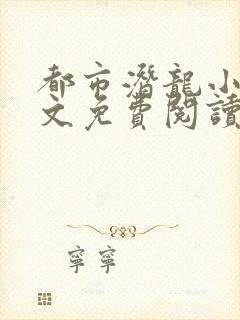 都市潛龍小
文免費閱讀
寧寧